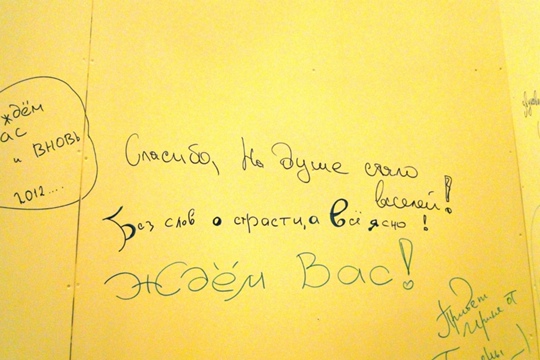 ждём
вас
и вновь
2012....
Спасибо, На душе стало
веселей!
Без слов о страсти, а всё ясно!
Ждём Вас!
Привет
от